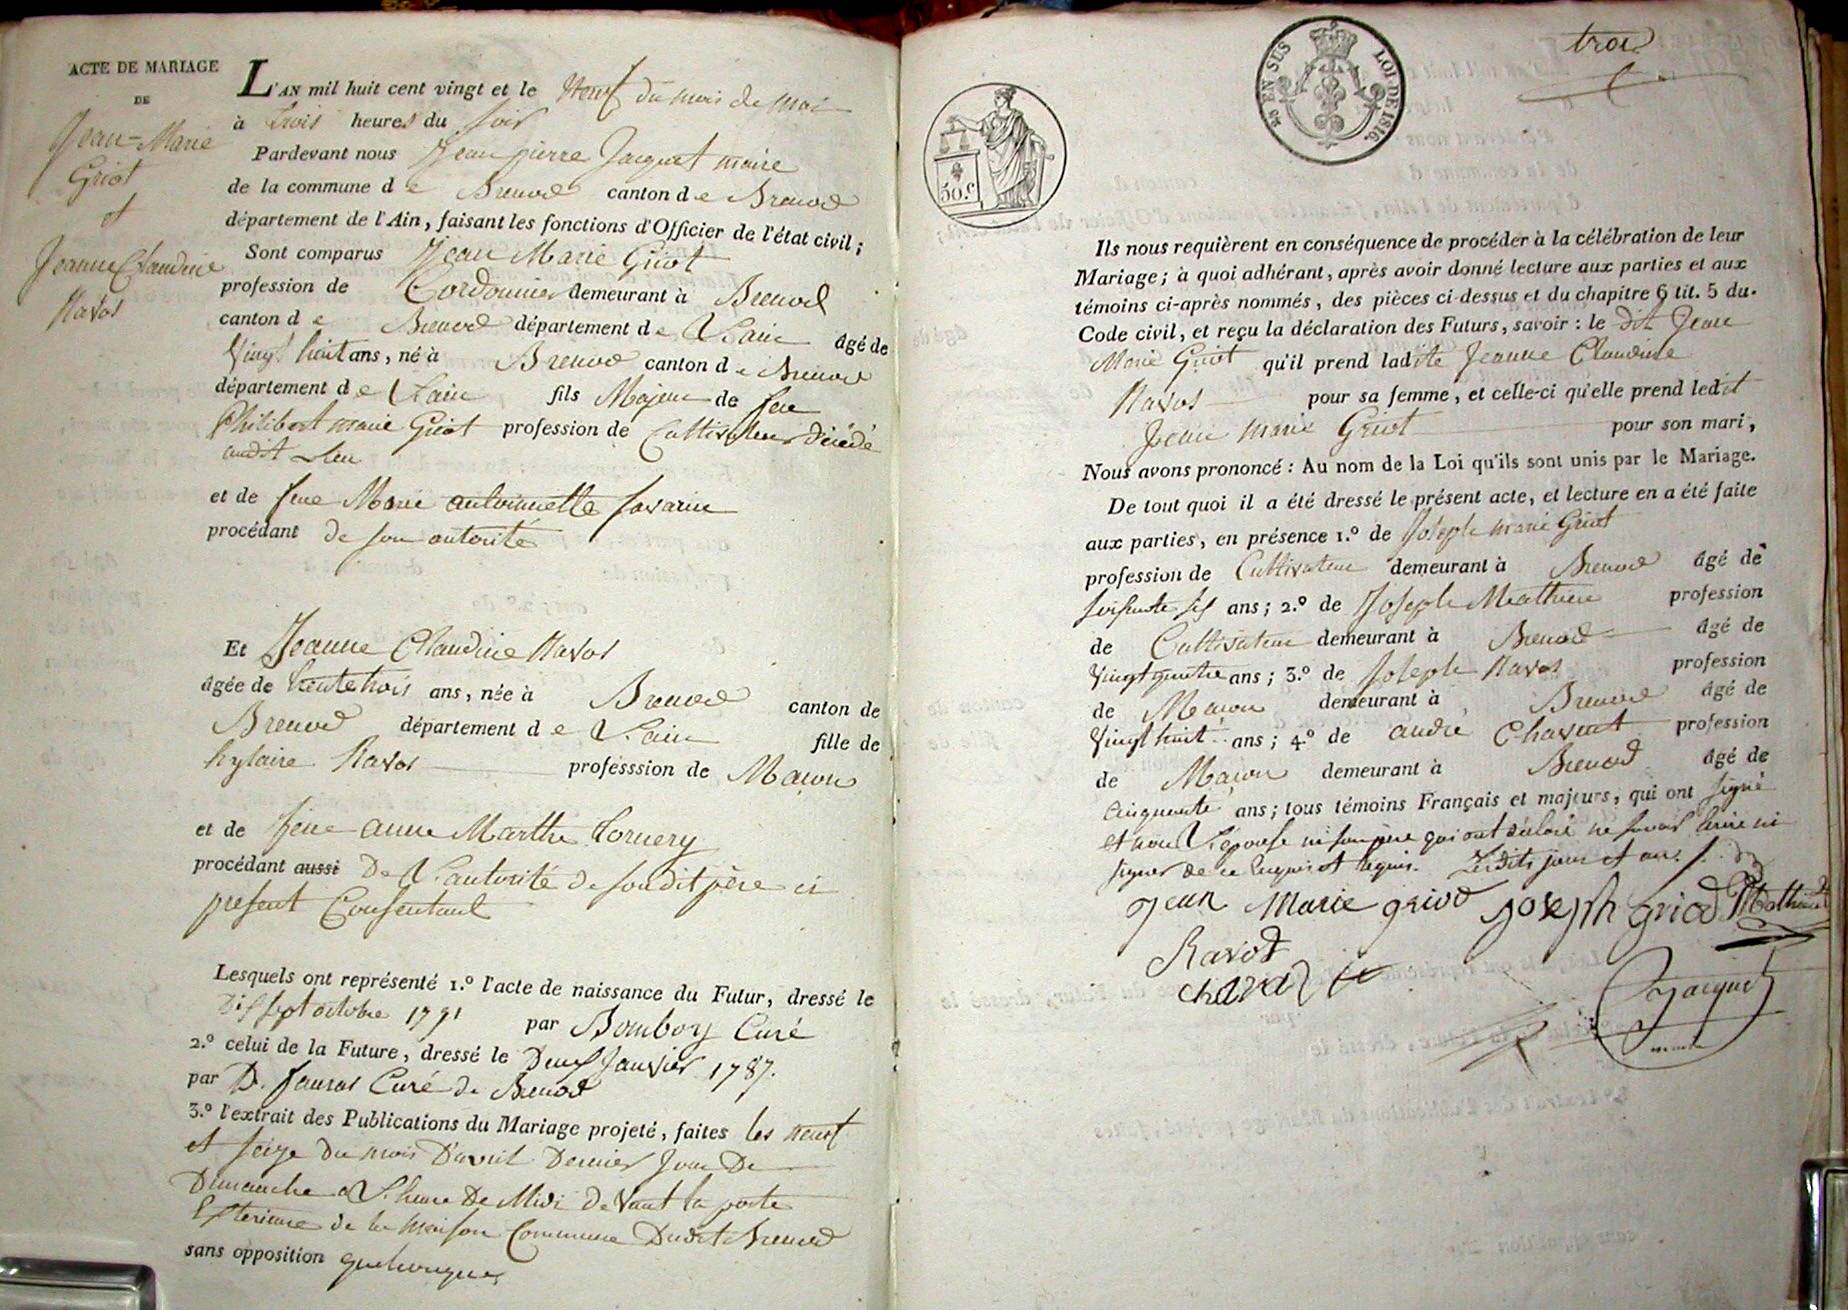 ACTE DE MARIAGE
DE
Jean-Marie
Griot
et
Jeanne Claudine
Ravot
L'AN mil huit cent vingt et le Neuf du mois de mai
à trois heures du soir
Pardevant nous Jean pierre Jacquet maire
de la commune de Brenod canton de Brenod
département de l'Ain, faisant les fonctions d'Officier de l'état civil;
Sont comparus Jean Marie Griot
profession de Cordonnier demeurant à Brenod
canton de Brenod département de L'ain âgé de
vingt huit ans, né à Brenod canton de Brenod
département de L'ain fils Majeur de feu
Philibert marie Griot profession de Cultivateur décédé
audit lieu
et de feue Marie antoinette savarin
procédant de son autorité
Et Jeanne Claudine Ravot
âgée de trente trois ans, née à Brenod canton de
Brenod département de L'ain fille de
hylaire Ravot professsion de Maçon
et de feue anne Marthe Cornery
procédant aussi De L'autorité de son dit père ici
present Consentant
Lesquels ont représenté 1.º l'acte de naissance du Futur, dressé le
Dix sept octobre 1791 par Bomboy Curé
2.º celui de la Future, dressé le Deux Janvier 1787.
par D. Curé de Brenod
3.º l'extrait des Publications du Mariage projeté, faites les neuf
et seize du mois D'avril Dernier Jour De
Dimanche a L'heure De Midi Devant la porte
Exterieure de la maison Commune Dudit Brenod
sans opposition quelconque
50.C
25 EN SUS
LOI DE 1816.
trois
Ils nous requièrent en conséquence de procéder à la célébration de leur
Mariage; à quoi adhérant, après avoir donné lecture aux parties et aux
témoins ci-après nommés, des pièces ci-dessus et du chapitre 6 tit. 5 du
Code civil, et reçu la déclaration des Futurs, savoir: le dit Jean
Marie Griot qu'il prend ladite Jeanne Claudine
Ravot pour sa femme, et celle-ci qu'elle prend ledit
Jean marie Griot pour son mari,
Nous avons prononcé: Au nom de la Loi qu'ils sont unis par le Mariage.
De tout quoi il a été dressé le présent acte, et lecture en a été faite
aux parties, en présence 1.º de Joseph marie Griot
profession de Cultivateur demeurant à Brenod âgé de
soixante six ans; 2.º de Joseph Mathieu profession
de Cultivateur demeurant à Brenod âgé de
vingt quatre ans; 3.º de Joseph Ravot profession
de Maçon demeurant à Brenod âgé de
vingt huit ans; 4.º de andré Chavent profession
de Maçon demeurant à Brenod âgé de
Cinquante ans; tous témoins Français et majeurs, qui ont signé
et non L'épouse ni son père qui ont déclaré ne savoir écrire ni
signer de ce enquis et requis. Lesdits jour et an.
Jean Marie griod joseph griod Mathieu
Ravod
Jacquet
maire